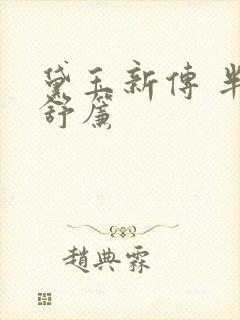 黛玉新傳 半
舒簾
趙典霖